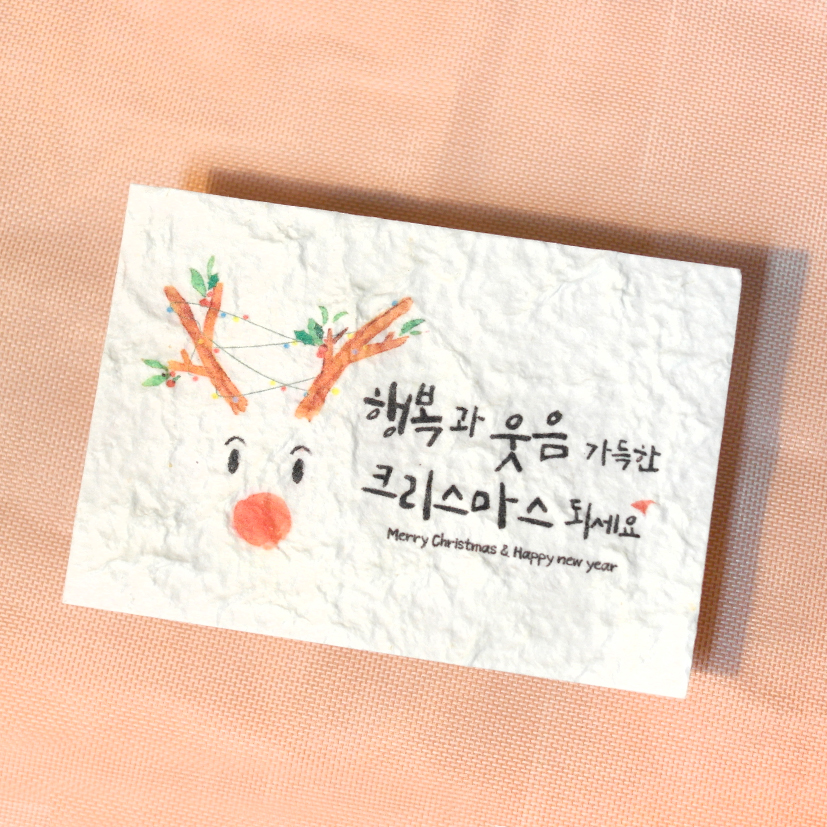 행복과 웃음 가득한
크리스마스 되세요
Merry Christmas & Happy new year